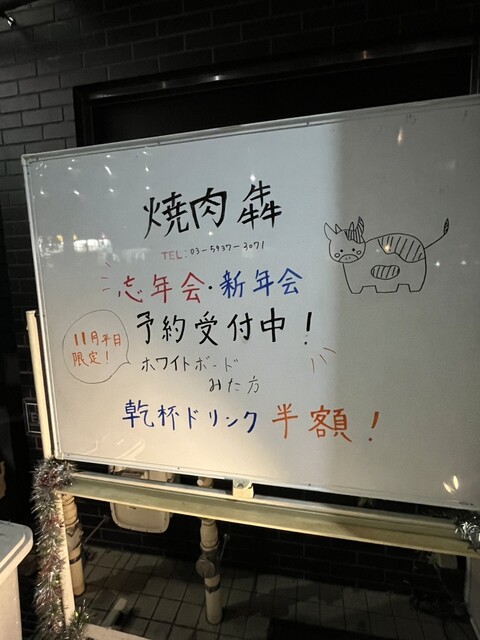 焼肉 犇
TEL:03-5937-3071
忘年会・新年会
予約受付中！
11月平日
限定！
ホワイトボード
みた方
乾杯ドリンク 半額！